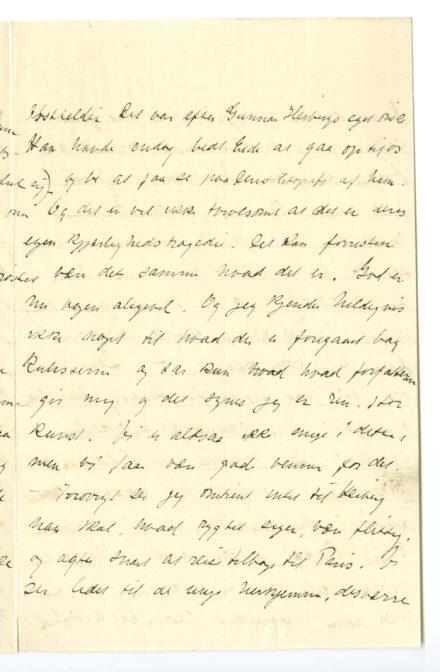 Vestfeldt. Det var efter Gunnar Heibergs eget ønske
Han havde endog bedt Eide at gaa op til os
og be at faa se paa Deres litografi af ham.
Og det er vel ikke tvivlsomt at det er deres
egen kjærlighedstragedie. Det kan forresten
være det samme hvad det er. God er
bogen alligevel. Og jeg kjender heldigvis
ikke noget til hvad der er foregaaet bag
kulisserne og tar kun hvad forfatteren
gir mig og det synes jeg er ren, stor
kunst. Vi er altsaa ikke enige i dette,
men vi faar være gode venner for det.
– Forøvrigt ser jeg omtrent intet til Heiberg
han skal, hvad rygtet siger, være flittig.
og agter snart at reise tilbage til Paris. Vi
ser lidet til de unge herhjemme, desværre